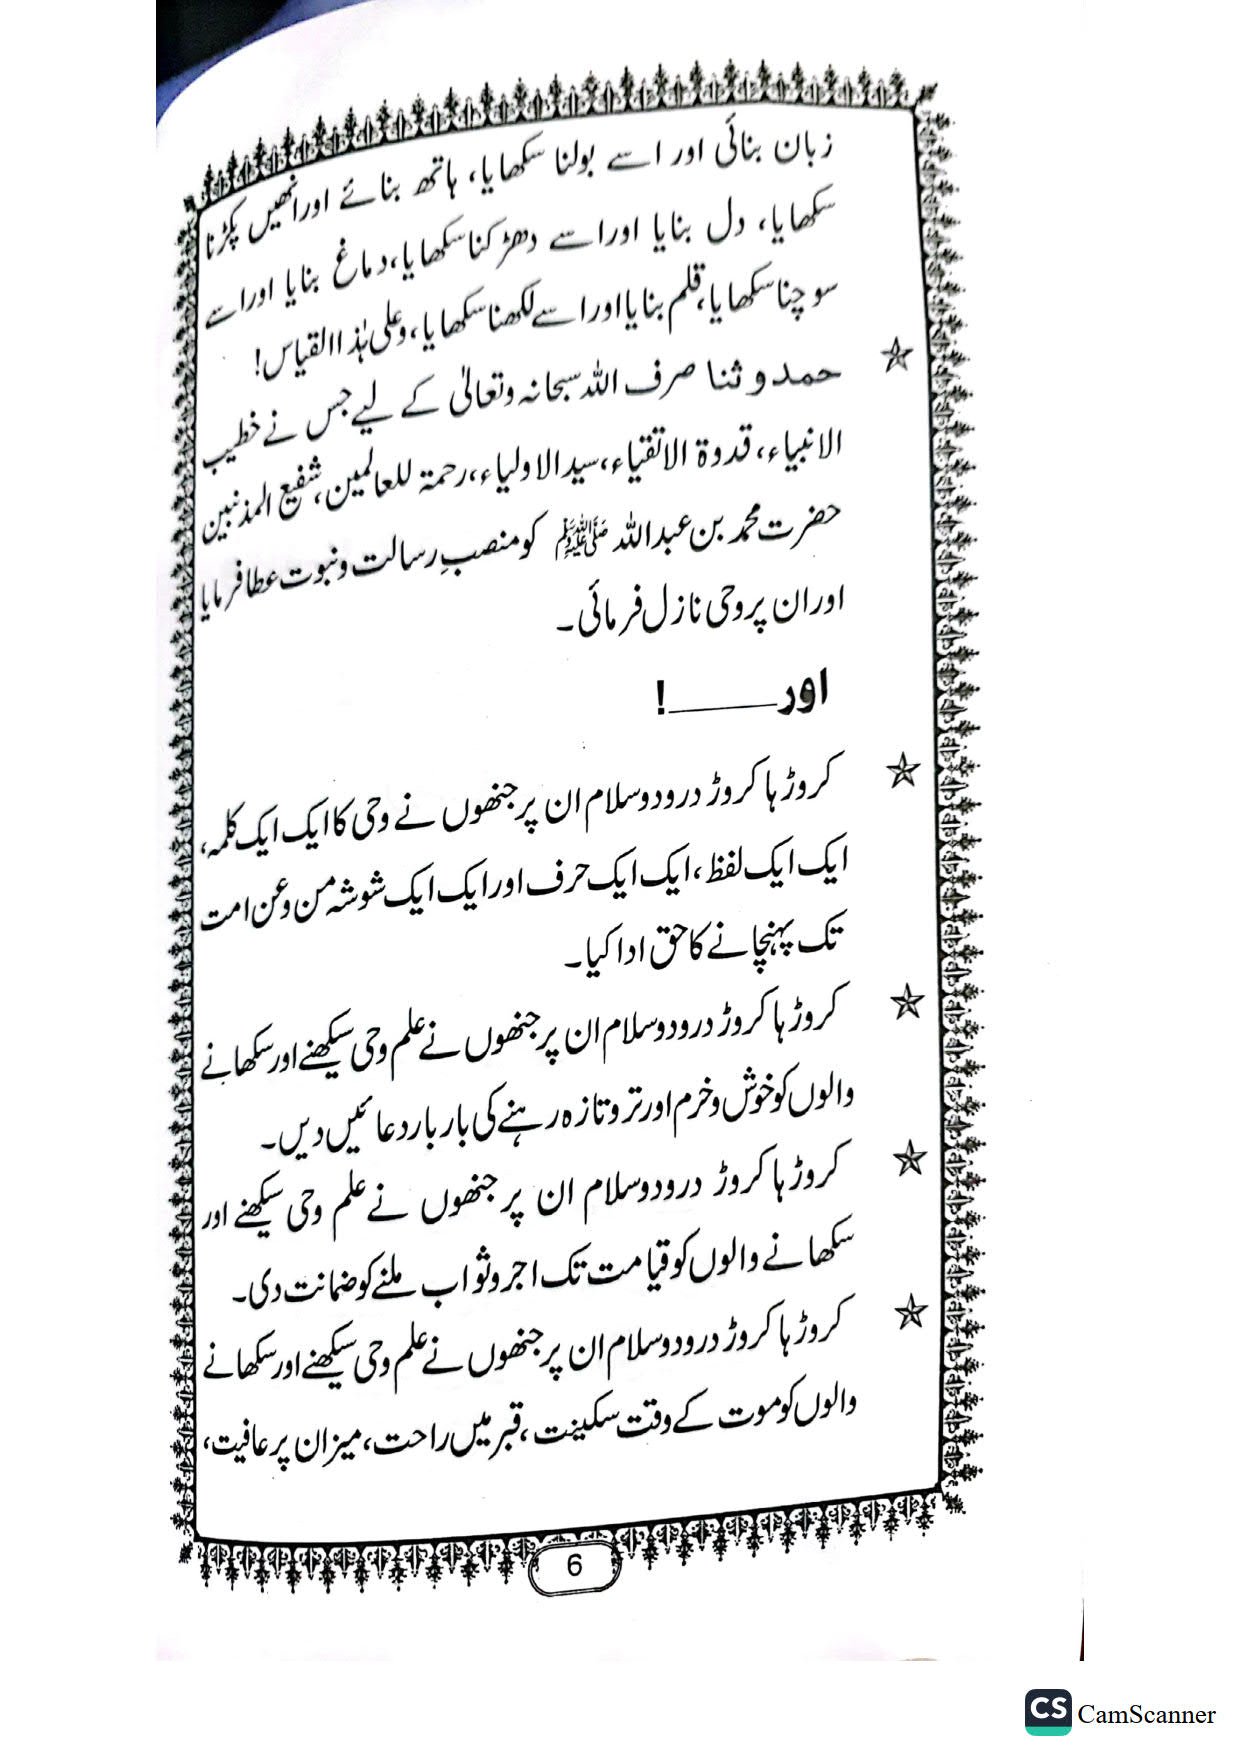 زبان بنائی اور اسے بولنا سکھایا، ہاتھ بنائے اور انھیں پکڑنا
سکھایا، دل بنایا اور اسے دھڑکنا سکھایا، دماغ بنایا اور اسے
سوچنا سکھایا، قلم بنایا اور اسے لکھنا سکھایا، وعلی ہٰذا القیاس!
☆ حمد و ثنا صرف اللہ سبحانہ وتعالیٰ کے لیے جس نے خطیب
الانبیاء، قدوۃ الاتقیاء، سید الاولیاء، رحمۃ للعالمین، شفیع المذنبین
حضرت محمد بن عبد اللہ ﷺ کو منصبِ رسالت و نبوت عطا فرمایا
اور ان پر وحی نازل فرمائی۔
اور ـــــــــ!
☆ کروڑ ہا کروڑ درود و سلام ان پر جنھوں نے وحی کا ایک ایک کلمہ،
ایک ایک لفظ، ایک ایک حرف اور ایک ایک شوشہ من و عن امت
تک پہنچانے کا حق ادا کیا۔
☆ کروڑ ہا کروڑ درود و سلام ان پر جنھوں نے علم وحی سیکھنے اور سکھانے
والوں کو خوش و خرم اور تر و تازہ رہنے کی بار بار دعائیں دیں۔
☆ کروڑ ہا کروڑ درود و سلام ان پر جنھوں نے علم وحی سیکھنے اور
سکھانے والوں کو قیامت تک اجر و ثواب ملنے کو ضمانت دی۔
☆ کروڑ ہا کروڑ درود و سلام ان پر جنھوں نے علم وحی سیکھنے اور سکھانے
والوں کو موت کے وقت سکینت، قبر میں راحت، میزان پر عافیت،
6
CS CamScanner